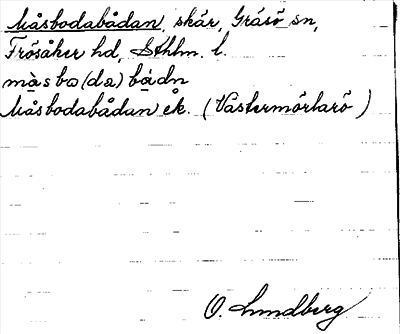 Måsbodabådan, skär, Gräsö sn,
Frösåker hd, Sthlm. l.
mà̱sba(da)bå̱dn
Måsbodabådan ek. (Västermörtarö)
O. Lundberg